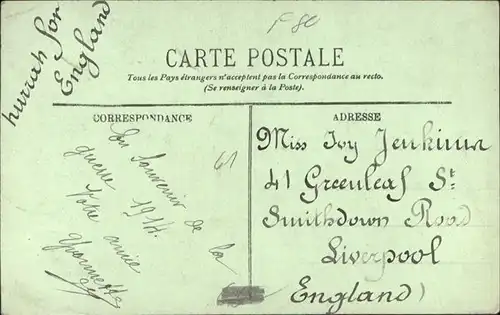 hurrah for
England
F 80
CARTE POSTALE
Tous les Pays étrangers n'acceptent pas la Correspondance au recto.
(Se renseigner à la Poste).
CORRESPONDANCE
En Souvenir de la
guerre 1914.
Votre amie
Yvonnette
61
ADRESSE
Miss Ivy Jenkins
41 Greenleaf St.
Smithdown Road
Liverpool
England